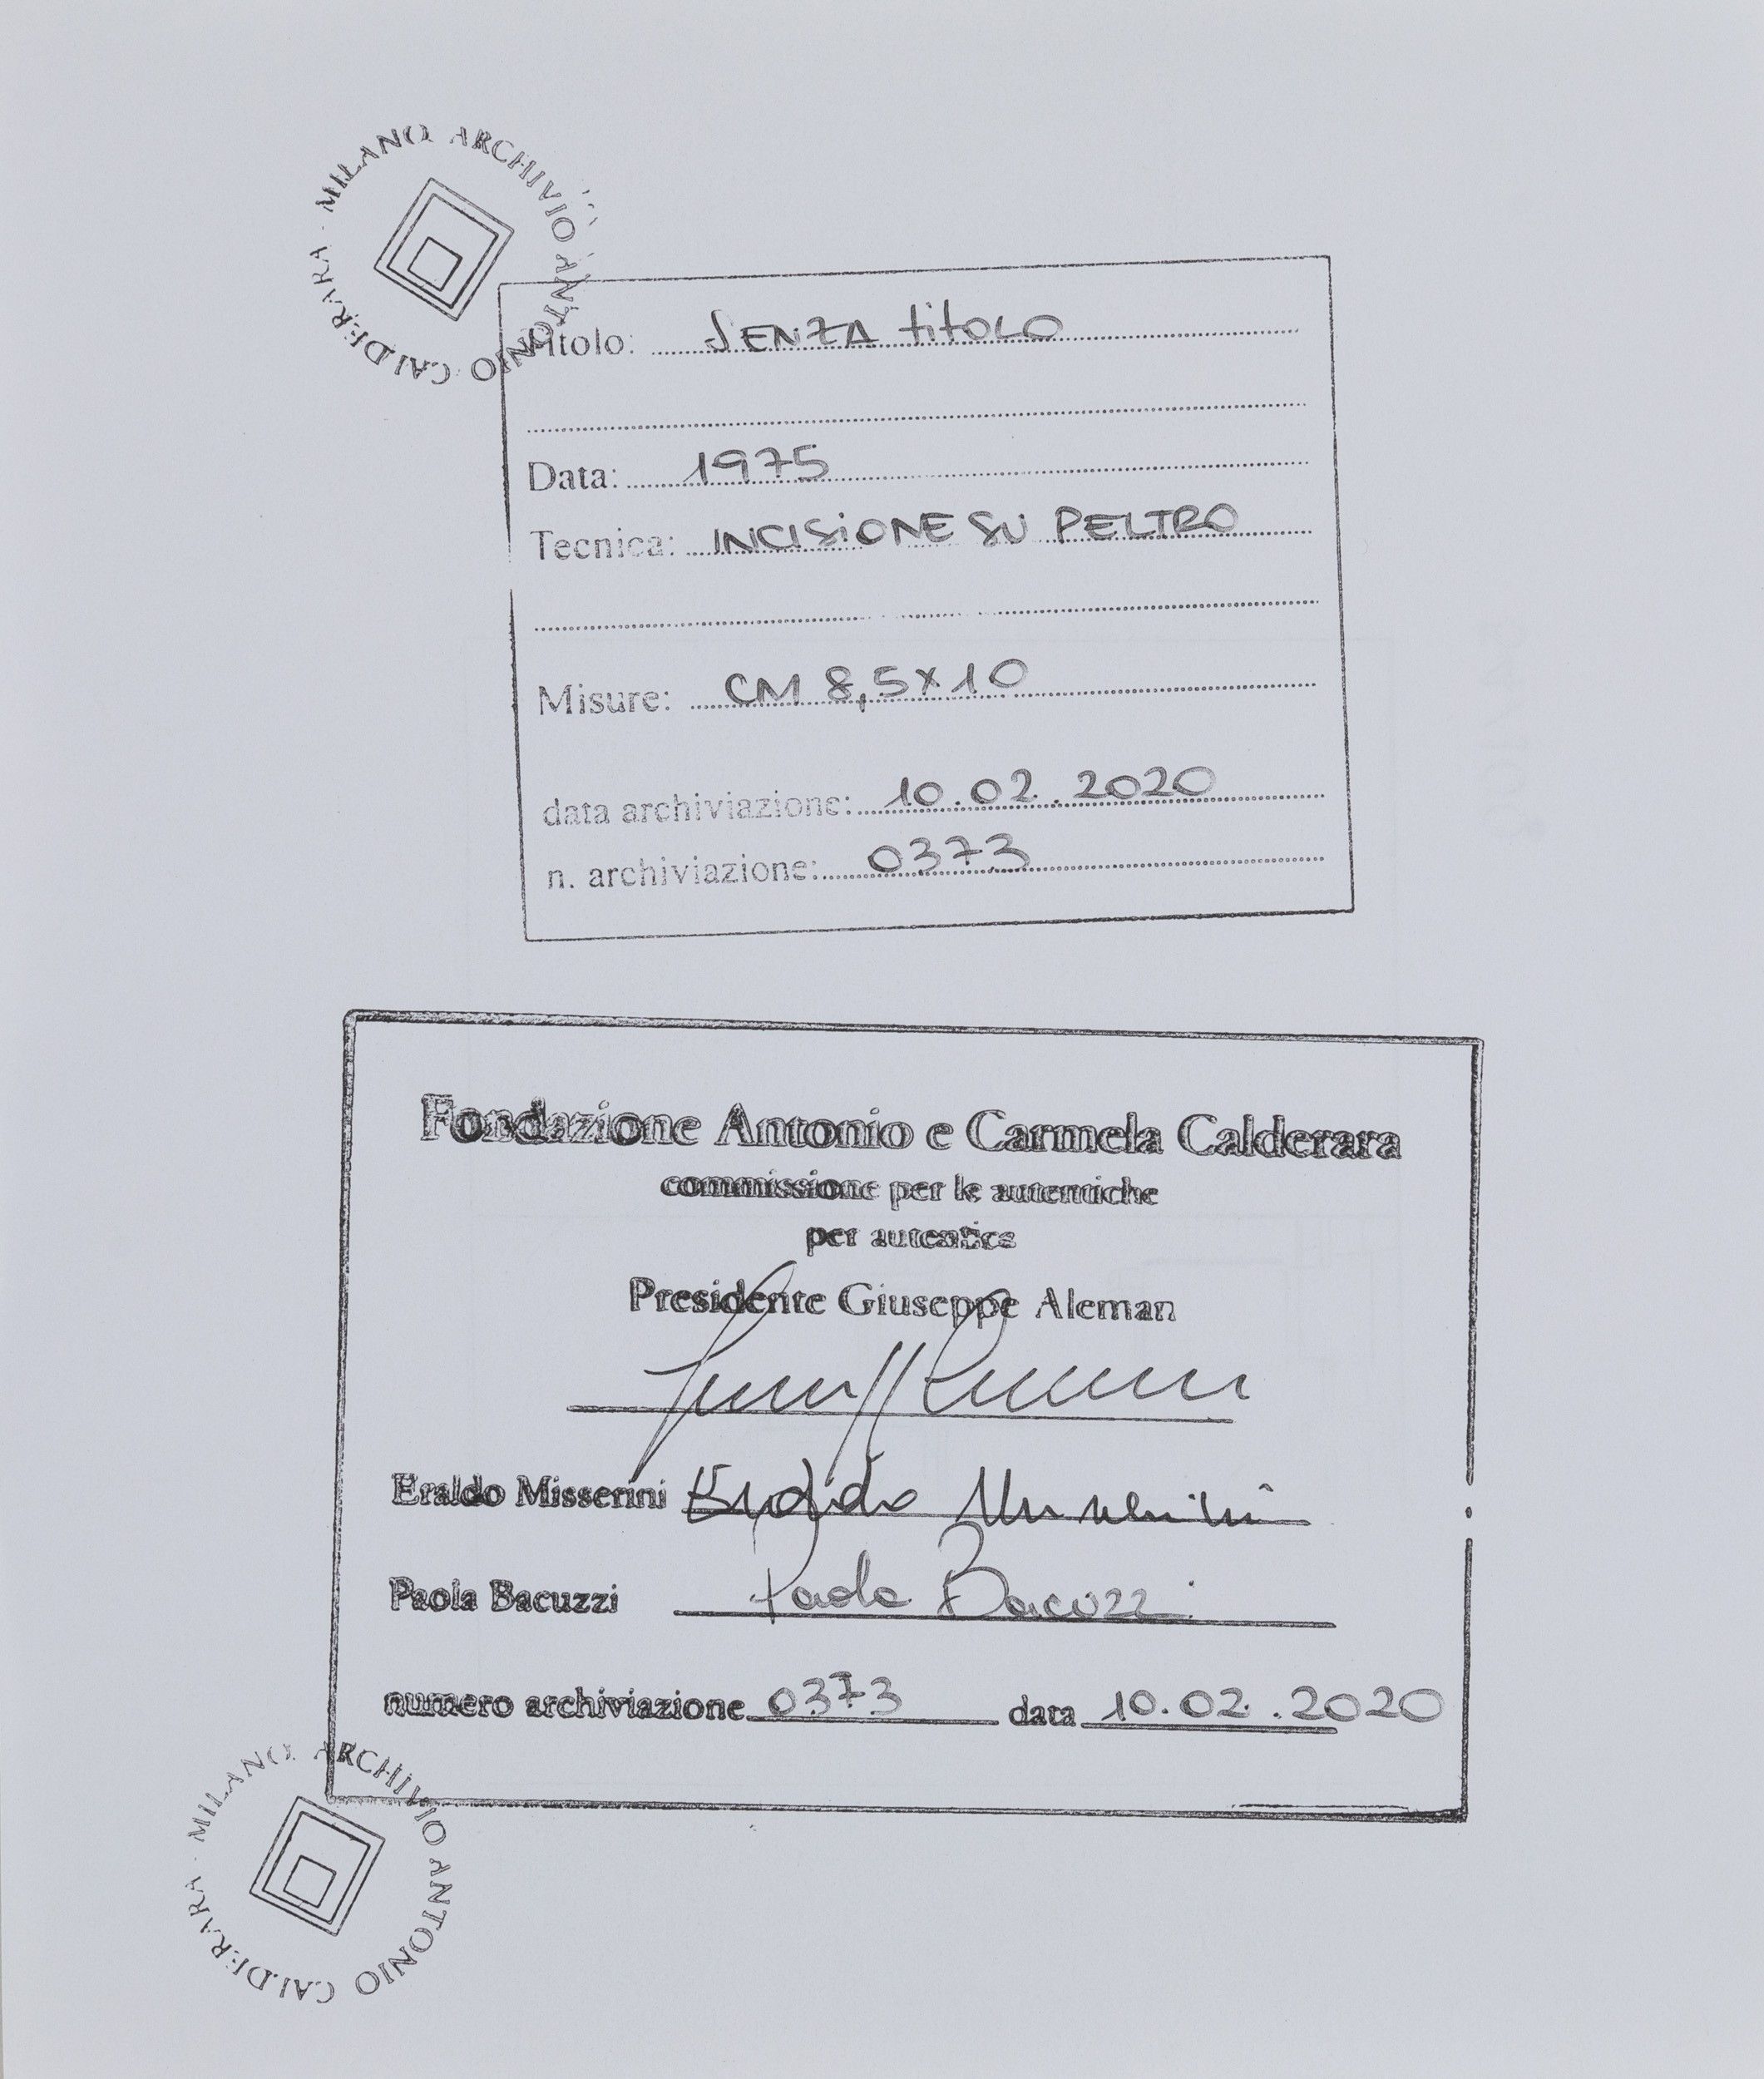 MILANO ARCHIVIO ANTONIO CALDERARA
Titolo: SENZA titOLO
Data: 1975
Tecnica: INCISIONE SU PELTRO
Misure: CM 8,5x10
data archiviazione: 10.02.2020
n. archiviazione: 0373
Fondazione Antonio e Carmela Calderara
commissione per le autentiche
per autentica
Presidente Giuseppe Aleman
Eraldo Misserini
Paola Bacuzzi Paola Bacuzzi
numero archiviazione 0373 data 10.02.2020
MILANO ARCHIVIO ANTONIO CALDERARA